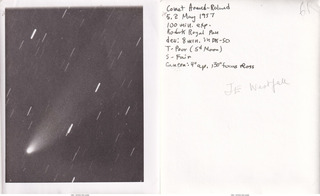 Comet Arend-Roland
5.2 May 1957
100 min. exp.
Kodak Royal Pan
dev: 8 min. in DK-50
T-Poor (5d Moon)
S-Fair
Camera: 4" ap.,
Ross
JE Westfall